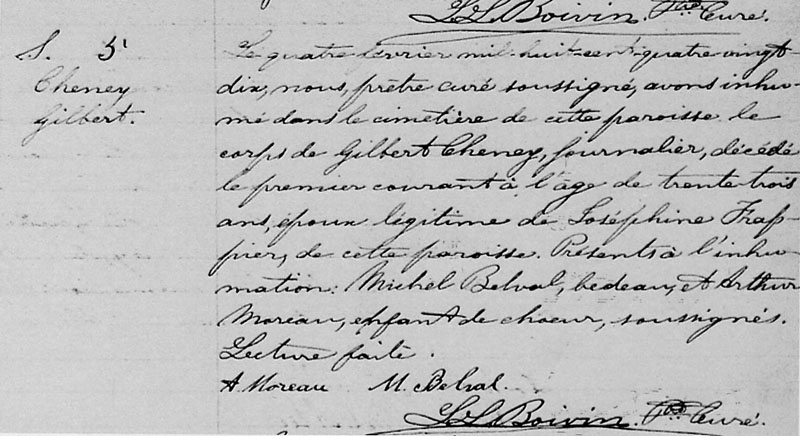 L. L. Boivin. Ptre Curé.
S. 5
Cheney
Gilbert.
Le quatre février mil-huit-cent-quatre vingt-
dix, nous, prêtre curé soussigné, avons inhu-
mé dans le cimetière de cette paroisse le
corps de Gilbert Cheney, journalier, décédé
le premier courant à l'âge de trente-trois
ans, époux légitime de Joséphine Frap-
pier, de cette paroisse. Présents à l'inhu-
mation: Michel Belval, bedeau, et Arthur
Moreau, enfant de choeur, soussignés.
Lecture faite.
A. Moreau M. Belval.
L. L. Boivin. Ptre Curé.